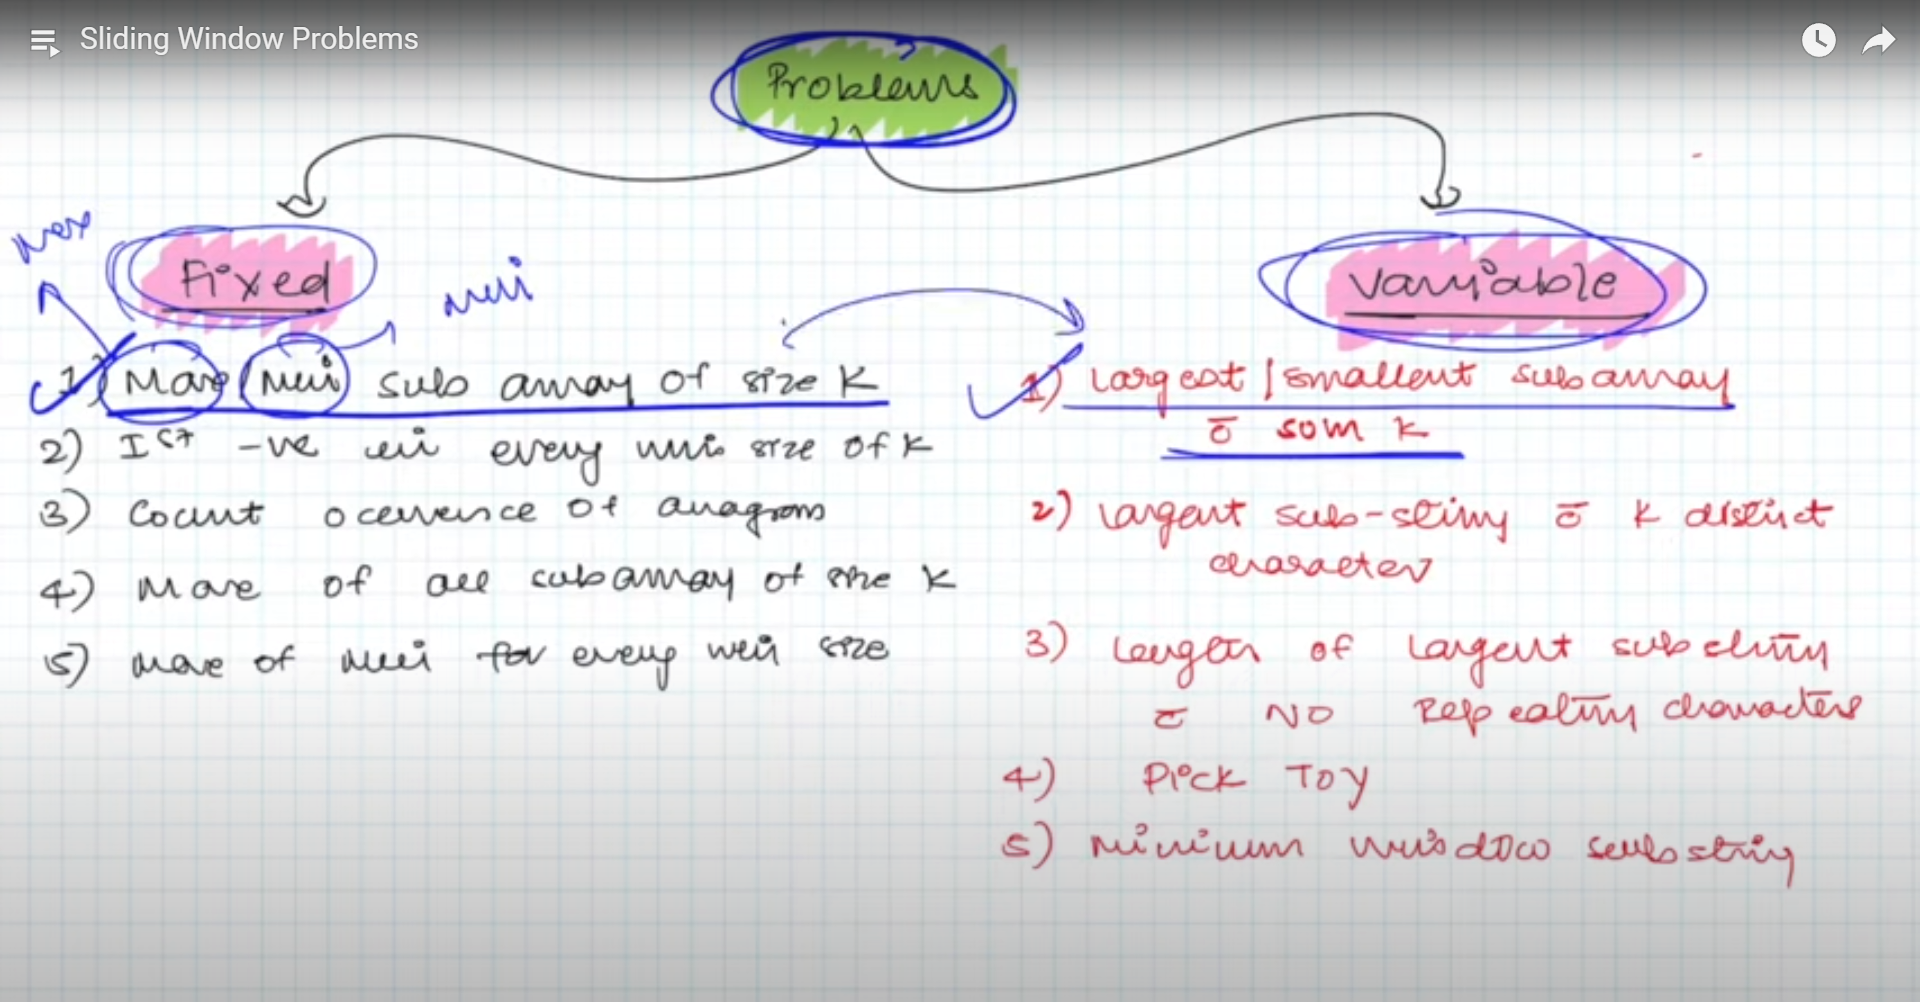 Sliding Window Problems
Problems
Fixed
Variable
max
min
1) Max/Min sub array of size K
2) Ist -ve in every win size of K
3) Count occurence of anagram
4) Max of all subarray of size K
5) Max of min for every win size
1) Largest/smallest subarray
c̄ sum K
2) Largest sub-string c̄ K distinct
character
3) Length of largest substring
c̄ NO Repeating characters
4) Pick Toy
5) Minimum window substring